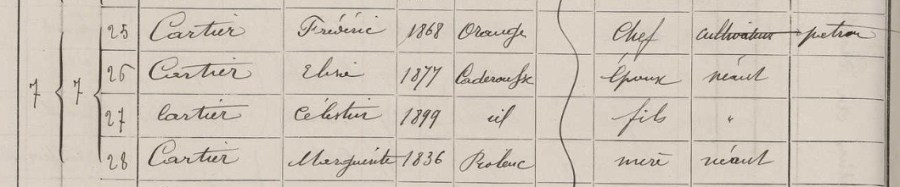 25 Cartier Frédéric 1868 Orange Chef cultivateur patron
7 7 26 Cartier Elisé 1877 Caderousse époux néant
27 Cartier Célestin 1899 id fils "
28 Cartier Marguerite 1836 mère néant